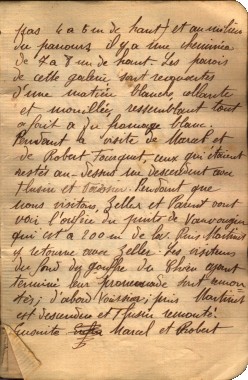 pas 4 à 5 m de haut) et au milieu
du parcours il y a une cheminée
de 7 à 8 m de haut. Les parois
de cette galerie sont recouvertes
d'une matière blanche collante
et mouillée, ressemblant tout
à fait à du fromage blanc.
Pendant la visite de Marcel et
de Robert Touquet, ceux qui étaient
restés au-dessus en descendent avec
Pendant que
nous visitons, Zeller et Valent vont
voir l'orifice du puits de Vauvougier
qui est à 200 m de là. Puis Martinet
y retourne avec Zeller. Les visiteurs
du fond du gouffre du Chien ayant
terminé leur promenade sont remon-
tés; d'abord puis Martinet
est descendu et remonté.
Ensuite Marcel et Robert